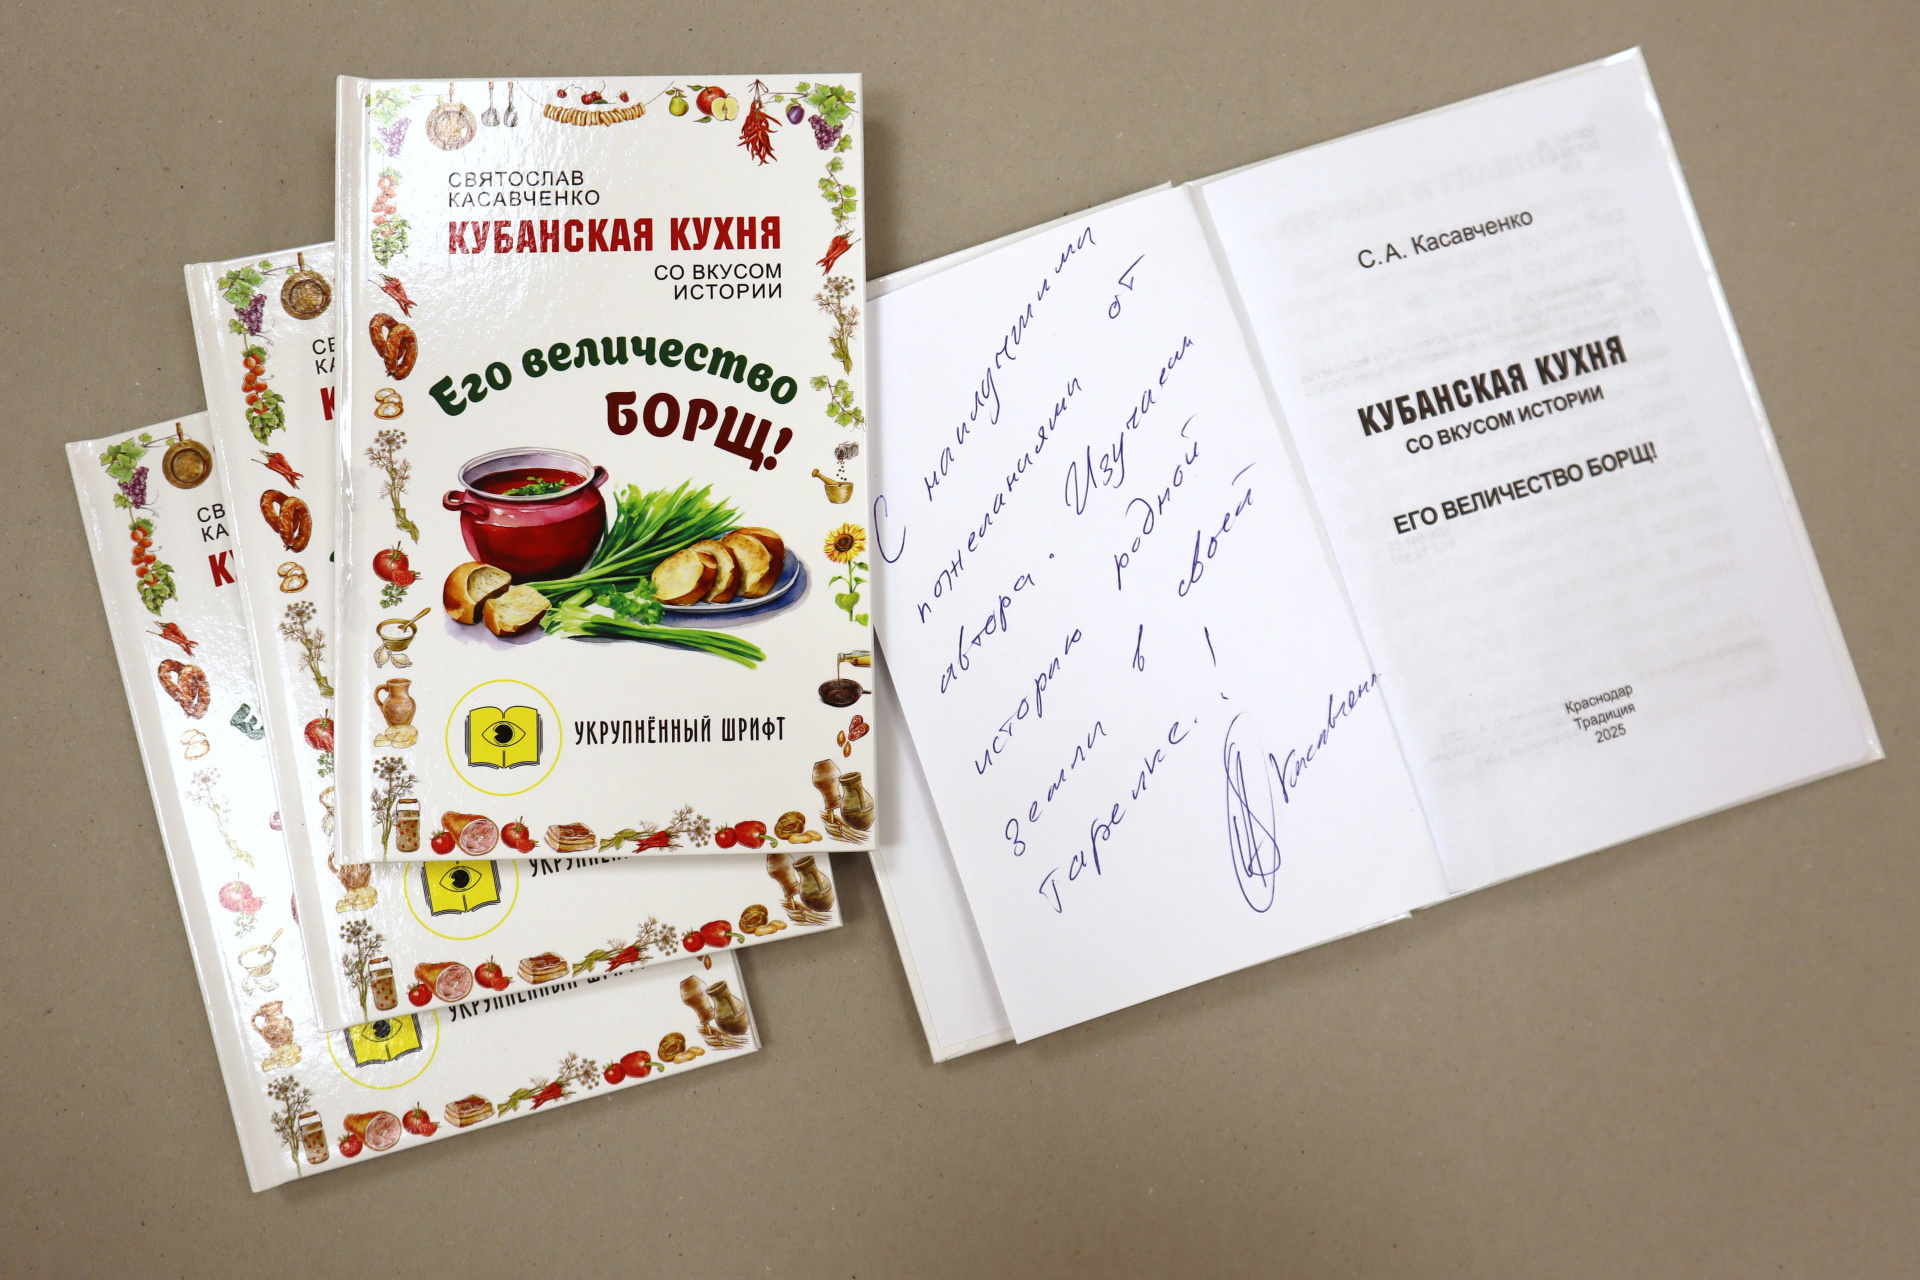 СВЯТОСЛАВ
КАСАВЧЕНКО
КУБАНСКАЯ КУХНЯ
СО ВКУСОМ
ИСТОРИИ
Его величество
БОРЩ!
УКРУПНЁННЫЙ ШРИФТ
СВ
КА
К
УКРУПНЁННЫЙ
СВ
КА
КУ
УКРУПНЁННЫЙ ШРИФТ
С наилучшими
пожеланиями от
автора. Изучаем
историю родной
земли в своей
тарелке!
Касавченко
С. А. Касавченко
КУБАНСКАЯ КУХНЯ
СО ВКУСОМ ИСТОРИИ
ЕГО ВЕЛИЧЕСТВО БОРЩ!
Краснодар
Традиция
2025